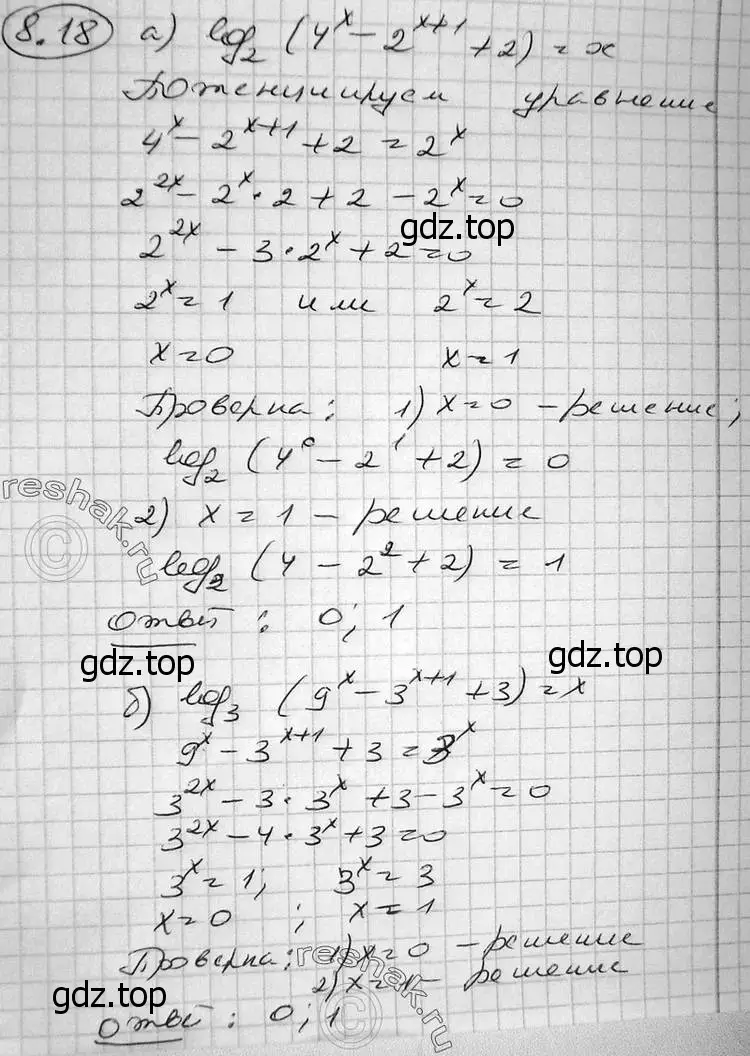 8.18 а) log₂ (4ˣ - 2ˣ⁺¹ + 2) = x
Потенциируем уравнение
4ˣ - 2ˣ⁺¹ + 2 = 2ˣ
2²ˣ - 2ˣ · 2 + 2 - 2ˣ = 0
gdz.top
2²ˣ - 3 · 2ˣ + 2 = 0
2ˣ = 1 или 2ˣ = 2
x = 0 x = 1
Проверка: 1) x = 0 - решение;
log₂ (4⁰ - 2¹ + 2) = 0
reshak.ru
2) x = 1 - решение
log₂ (4 - 2² + 2) = 1
Ответ: 0; 1
gdz.top
gdz.top
б) log₃ (9ˣ - 3ˣ⁺¹ + 3) = x
9ˣ - 3ˣ⁺¹ + 3 = 3ˣ
3²ˣ - 3 · 3ˣ + 3 - 3ˣ = 0
3²ˣ - 4 · 3ˣ + 3 = 0
3ˣ = 1; 3ˣ = 3
x = 0 ; x = 1
Проверка: 1) x = 0 - решение
2) x = 1 - решение
reshak.ru
gdz.top
Ответ: 0; 1
gdz.top